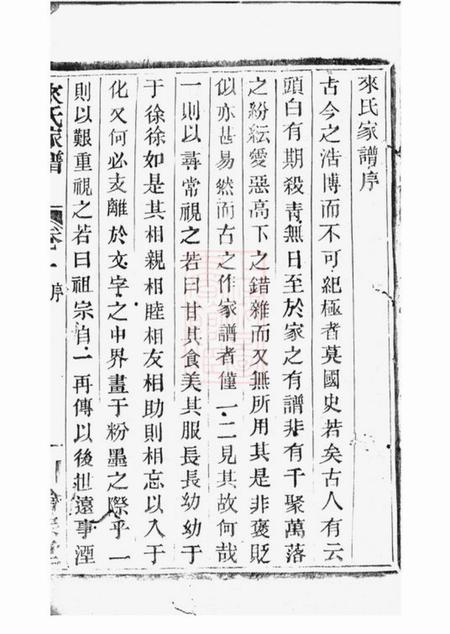 來氏家譜序
古今之浩博而不可紀極者莫國史若矣古人有云
頭白有期殺青無日至於家之有譜非有千聚萬落
之紛紜愛惡高下之錯雜而又無所用其是非褒貶
似亦甚易然而古之作家譜者僅一二見其故何哉
一則以尋常視之若曰甘其食美其服長長幼幼于
于徐徐如是其相親相睦相友相助則相忘以入于
化又何必支離於文字之中界畫于粉墨之際乎一
則以艱重視之若曰祖宗自一再傳以後世遠事湮
來氏家譜 卷一 序 一